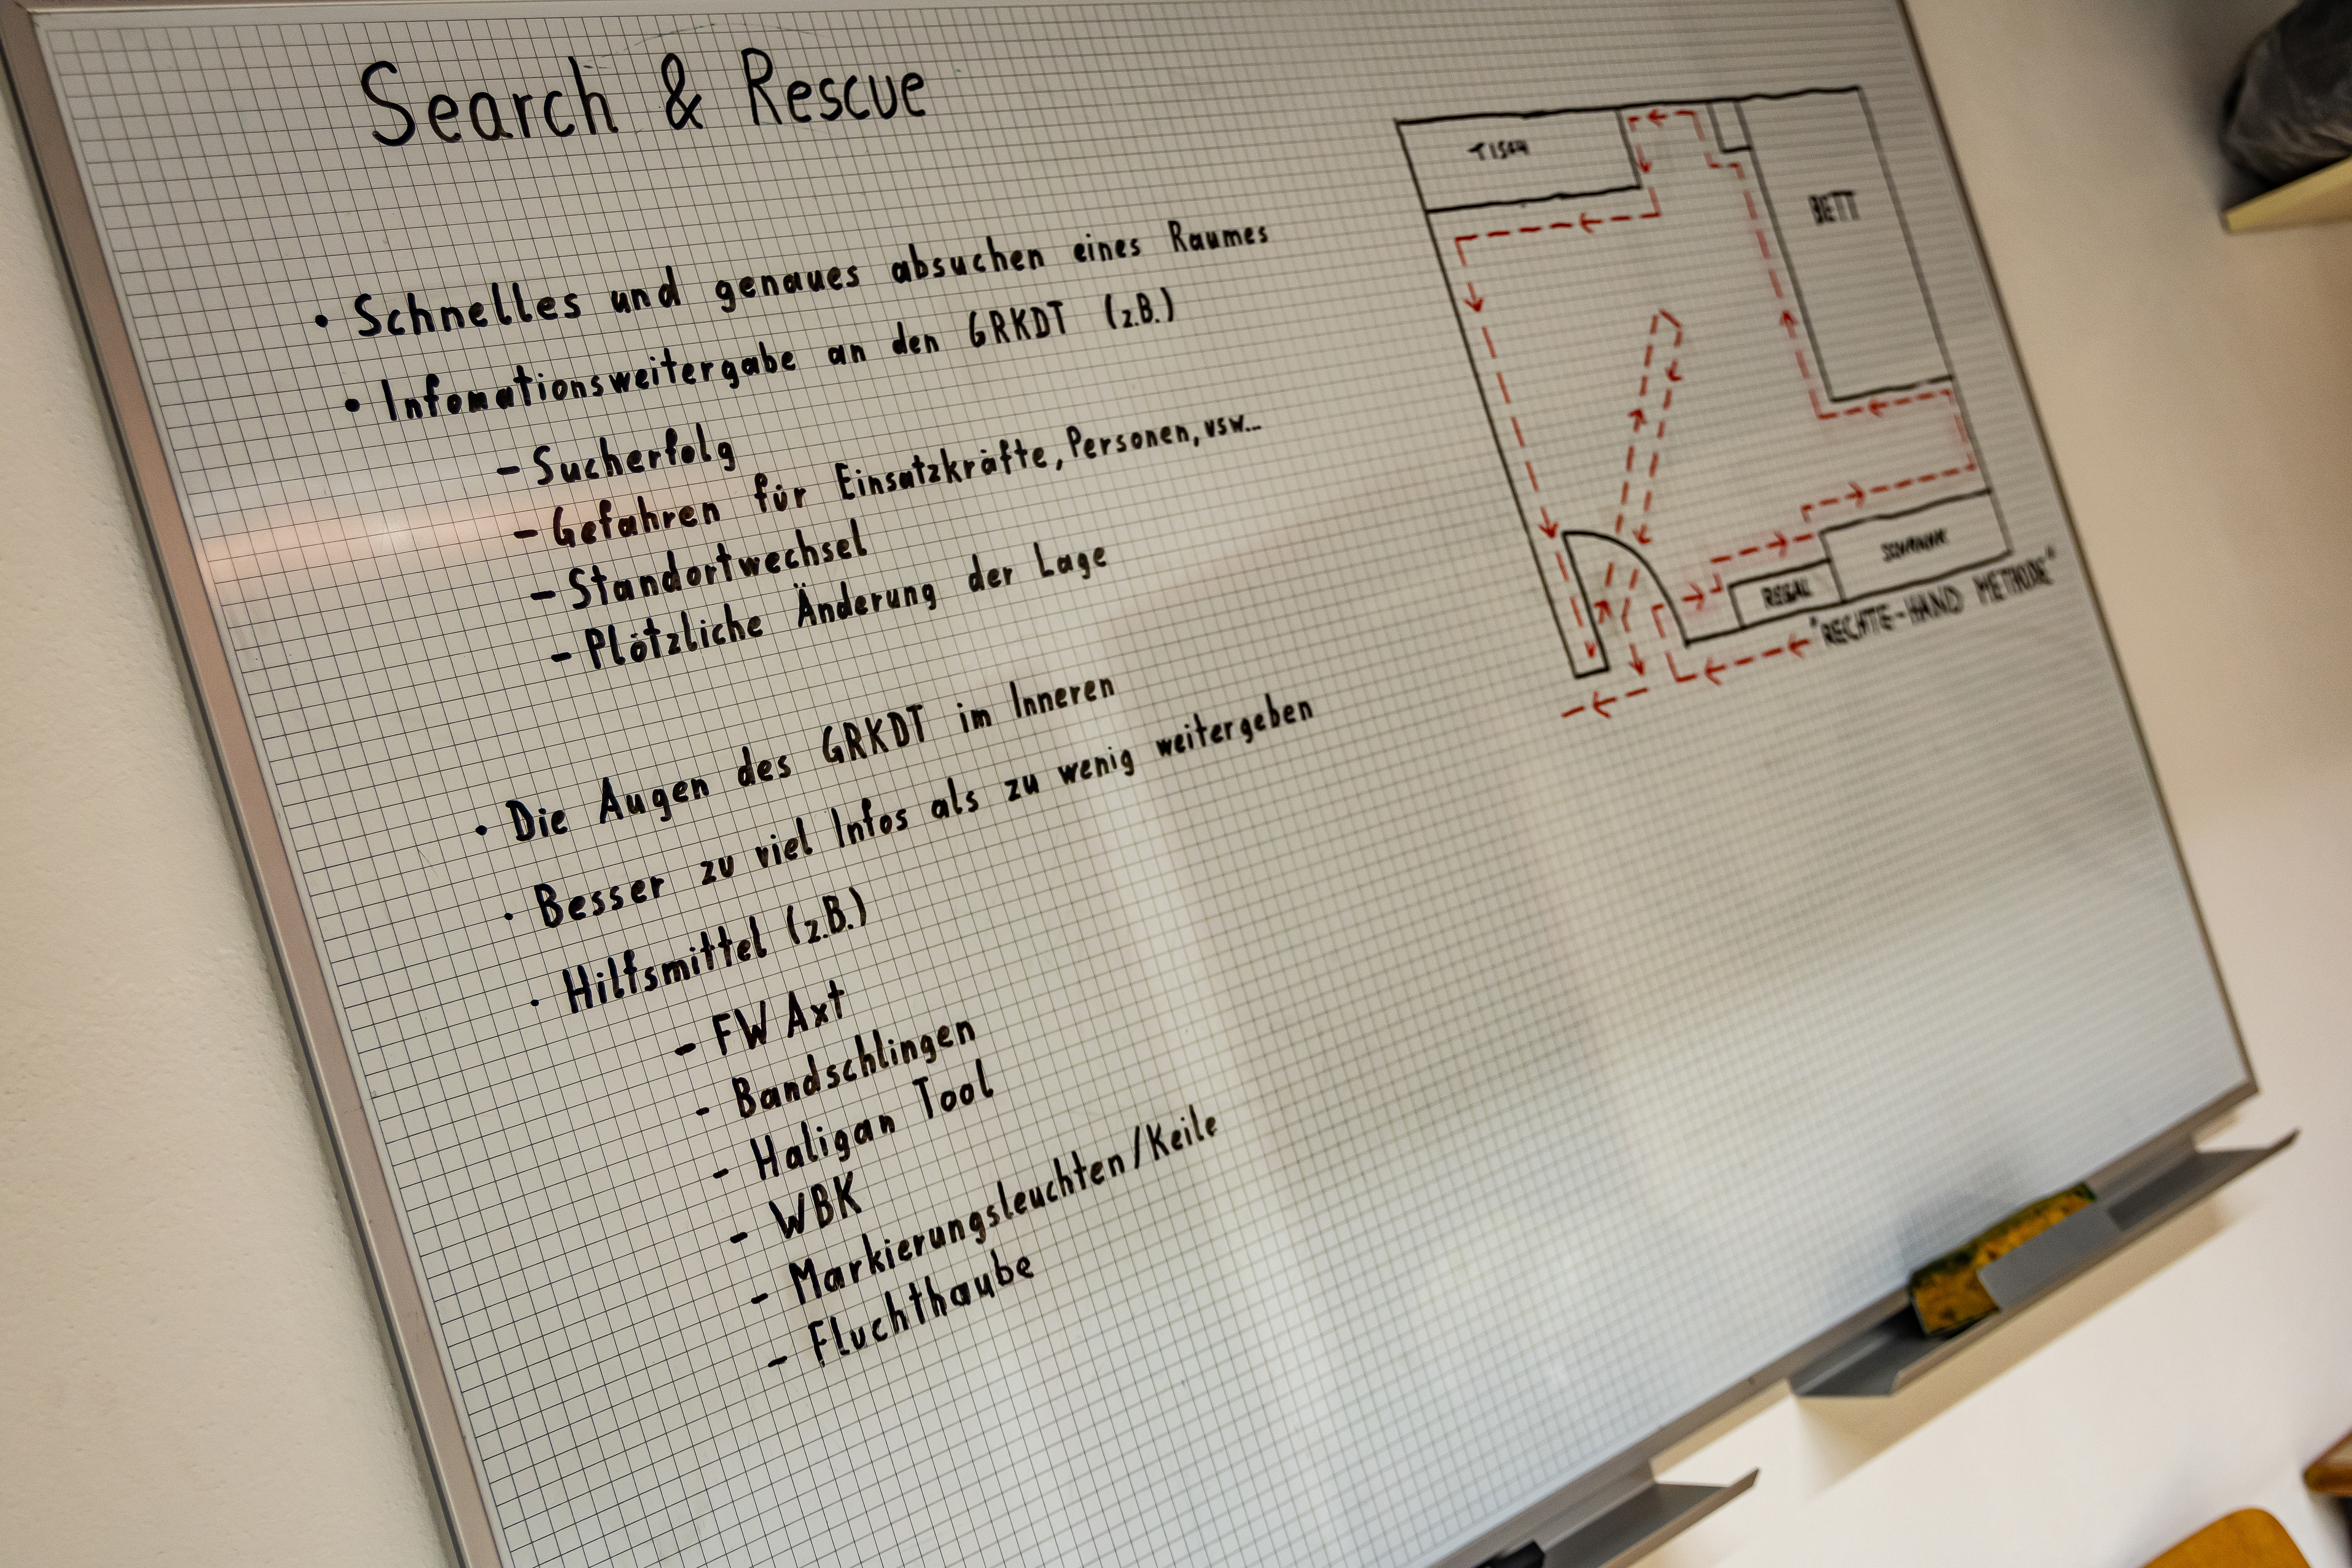 Search & Rescue
• Schnelles und genaues absuchen eines Raumes
• Infomationsweitergabe an den GRKDT (z.B.)
- Sucherfolg
- Gefahren für Einsatzkräfte, Personen, usw...
- Standortwechsel
- Plötzliche Änderung der Lage
• Die Augen des GRKDT im Inneren
• Besser zu viel Infos als zu wenig weitergeben
• Hilfsmittel (z.B.)
- FW Axt
- Bandschlingen
- Haligan Tool
- WBK
- Markierungsleuchten/Keile
- Fluchthaube
TISCH
BETT
SCHRANK
REGAL
"RECHTE-HAND METHODE"